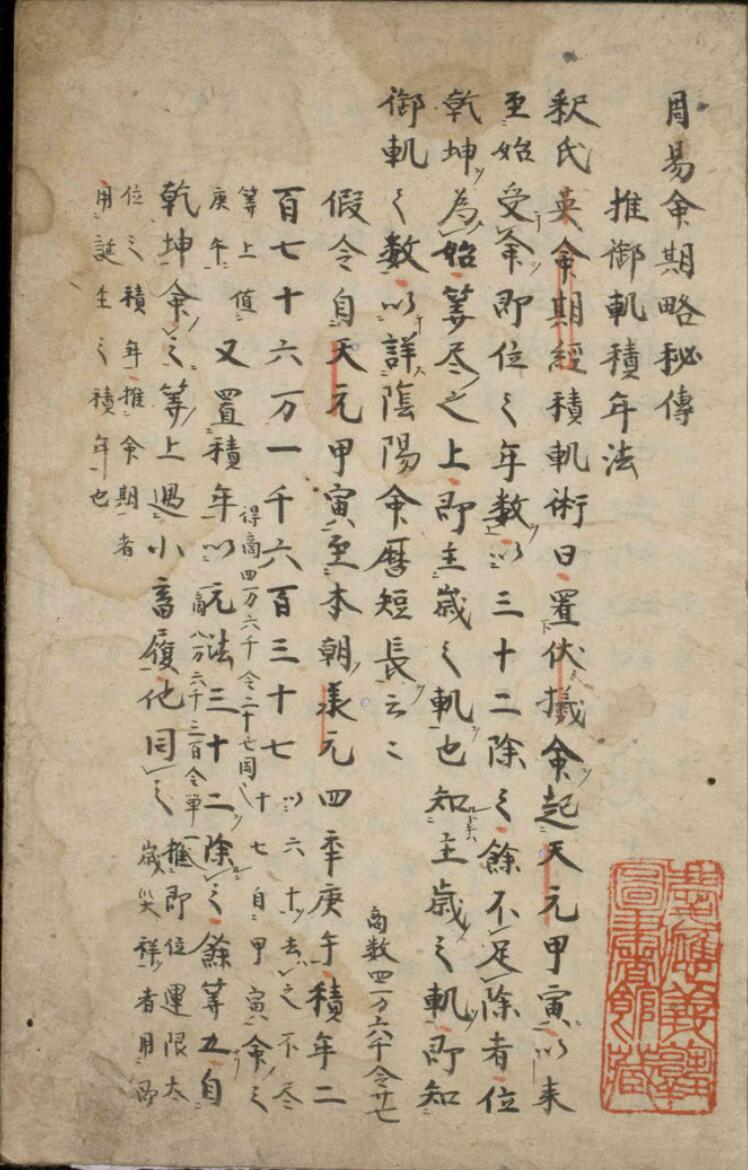 周易命期略秘傳
推御軌積年法
釈氏英命期経積軌術曰置伏羲命起天元甲寅以来
至始受命即位之年数以三十二除之餘不足除者位
乾坤為始筭尽之上即主歳之軌也知主歳之軌即知
御軌之数以詳陰陽命暦短長云々
商数四万六千令廿七
假令自天元甲寅至本朝羕元四年庚午積年二
百七十六万一千六百三十七以六十去之不尽
十七自甲寅命之
筭上値
庚午
得商四万六千令二十七周
又置積年以元法三十二除之餘筭五自
商八万六千三百令単一
乾坤命之筭上遇小畜履他同之推即位運限太
歳災祥者用即
位之積年推命期者
用誕生之積年也
慶應義塾
圖書館藏